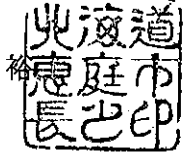 北海道
恵庭市
長之印
裕